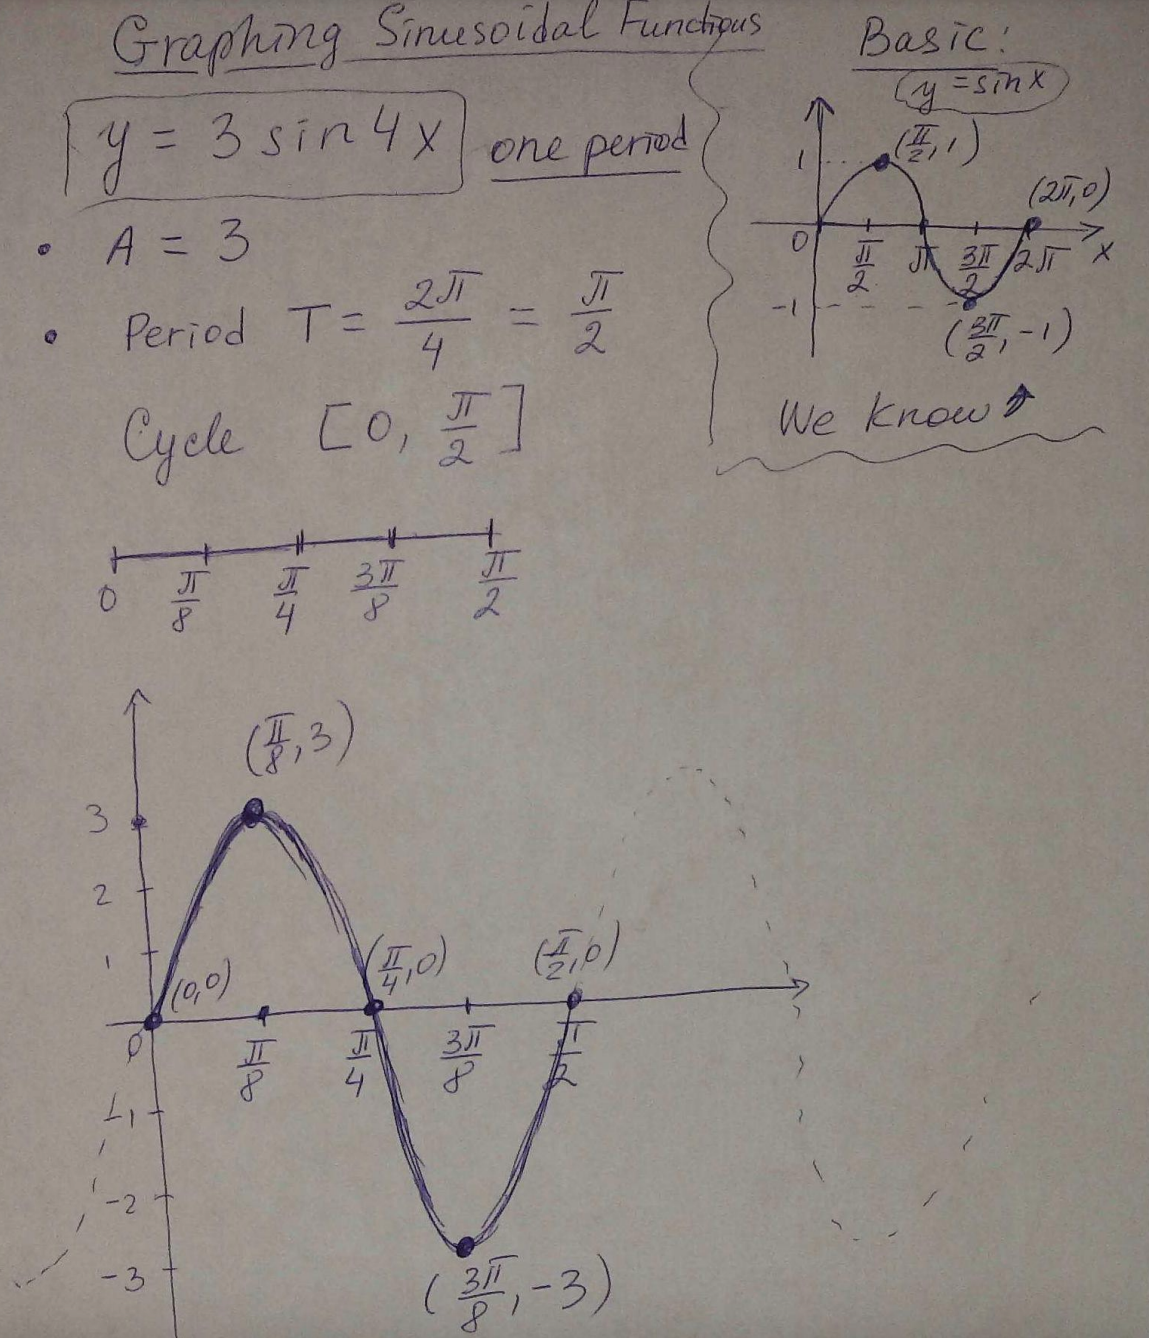 Graphing Sinusoidal Functions
y = 3 sin 4x one period
• A = 3
• Period T = 2π/4 = π/2
Cycle [0, π/2]
0 π/8 π/4 3π/8 π/2
Basic:
y = sin x
1 (π/2, 1)
(2π, 0)
0 π/2 π 3π/2 2π x
-1
(3π/2, -1)
We know
(π/8, 3)
3
2
1
(0,0) (π/4, 0) (π/2, 0)
0 π/8 π/4 3π/8 π/2
-1
-2
-3
(3π/8, -3)